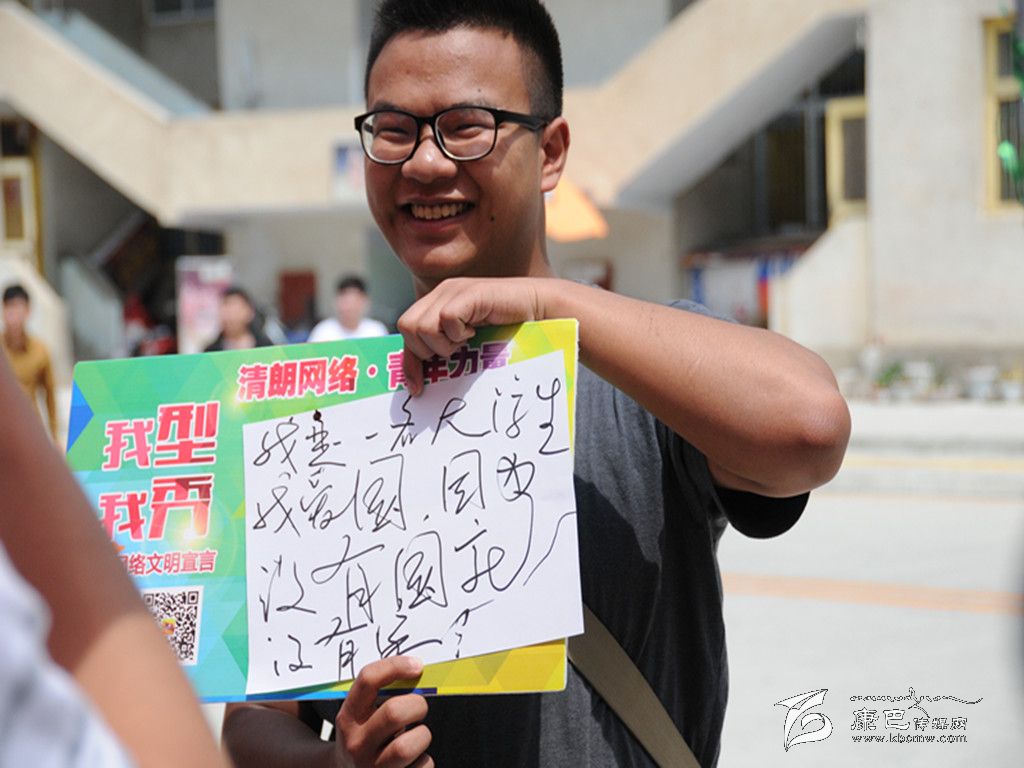 清朗网络·青年力量
我型
我秀
网络文明宣言
我是一名大学生
我爱国,因为
没有国,就
没有家!
康巴传媒网
www.kbcmw.com